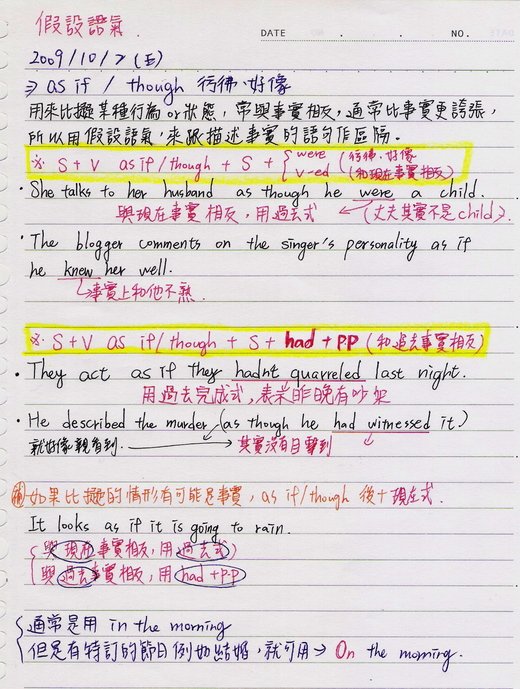 假設語氣.
DATE
NO.
2009/10/2 (五)
⇒ as if / though 彷彿、好像
用來比擬某種行為 or 狀態，常與事實相反，通常比事實更誇張，
所以用假設語氣，來跟描述事實的語句作區隔。
※ S + V as if / though + S + { were (彷彿、好像
v-ed (和現在事實相反)
• She talks to her husband as though he were a child.
與現在事實相反，用過去式 ← (丈夫其實不是 child).
• The blogger comments on the singer's personality as if
he knew her well.
↳事實上和他不熟.
※ S + V as if / though + S + had + PP (和過去事實相反)
• They act as if they hadn't quarreled last night.
用過去完成式，表示昨晚有吵架
• He described the murder (as though he had witnessed it.)
就好像親看到. → 其實沒有目擊到
(補) 如果比擬的情形有可能是事實，as if / though 後 + 現在式.
It looks as if it is going to rain.
(與現在事實相反，用過去式)
(與過去事實相反，用 had + p.p
通常是用 in the morning
但是有特訂的節日例如結婚，就可用 → On the morning.